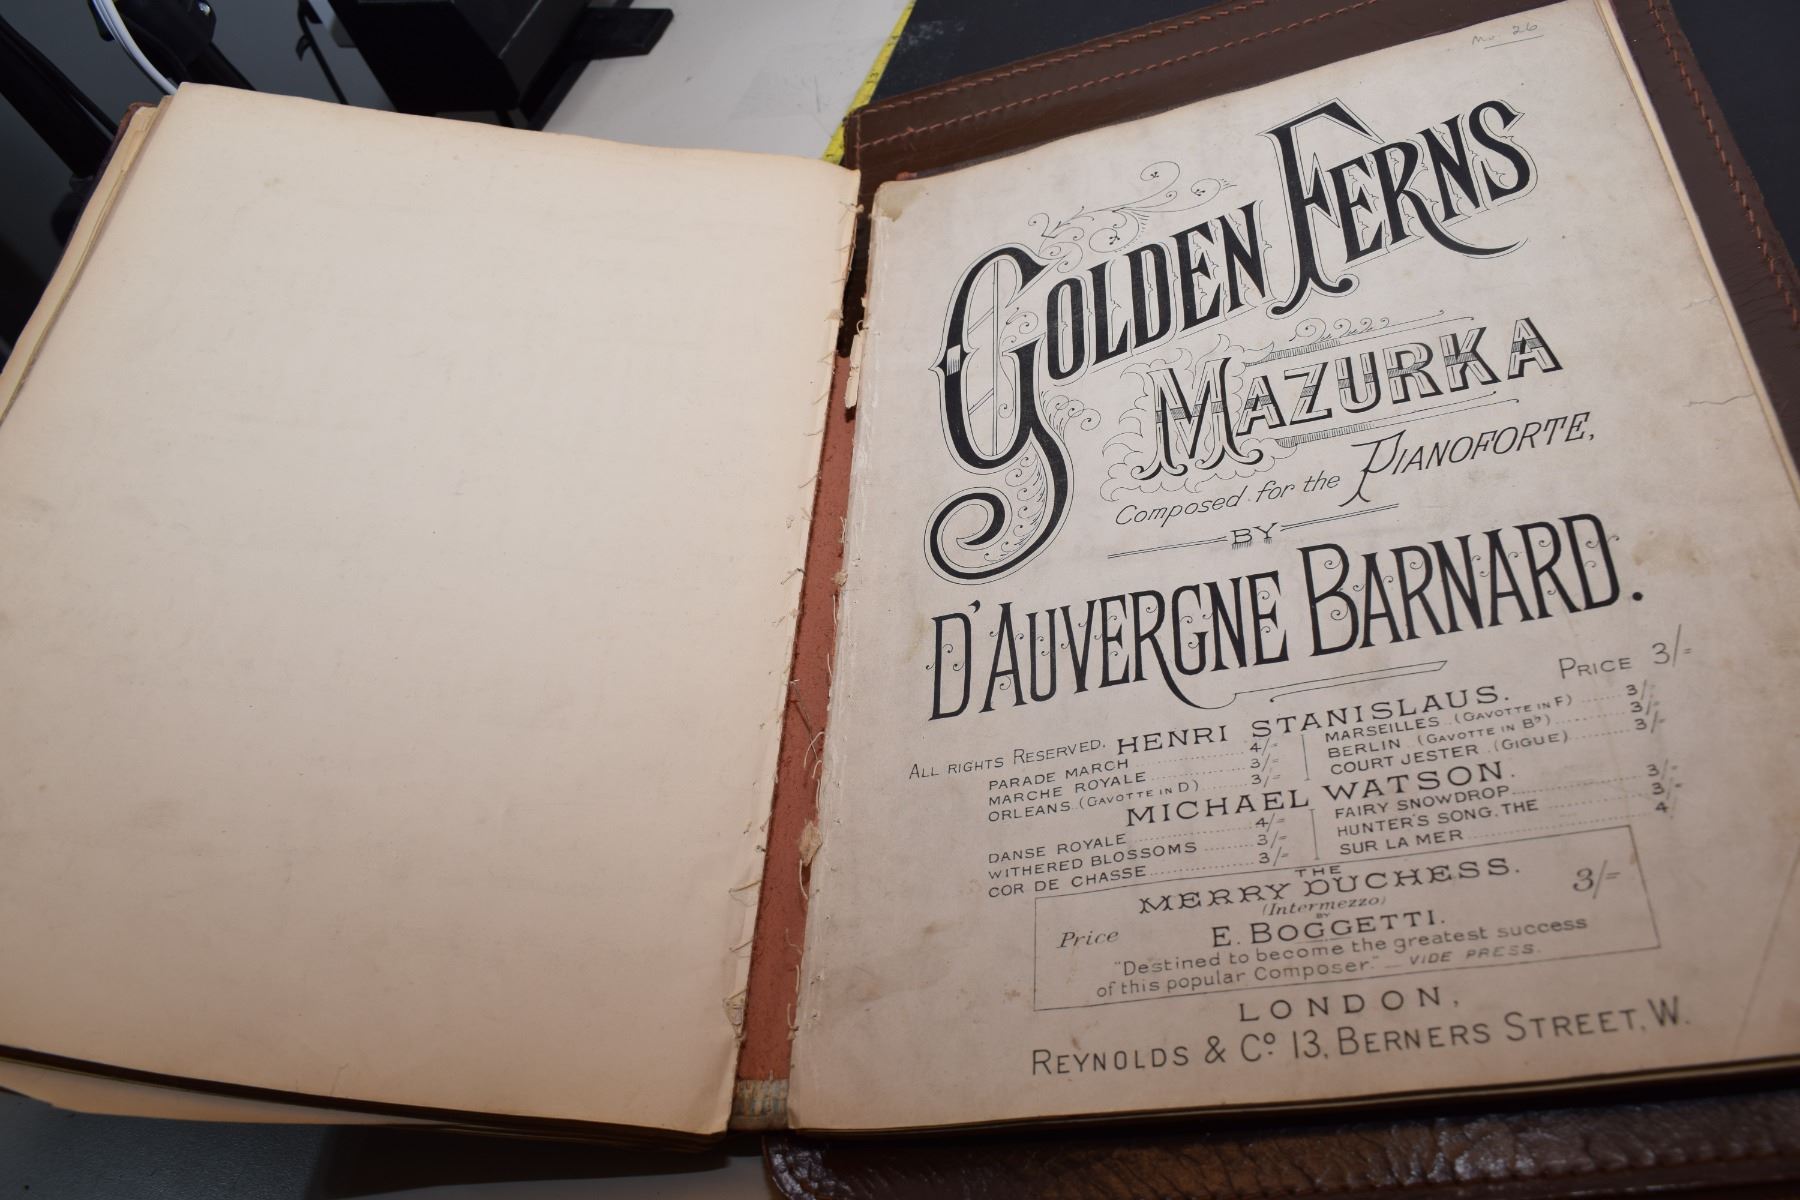 No. 26
GOLDEN FERNS
MAZURKA
Composed for the PIANOFORTE,
BY
D'AUVERGNE BARNARD.
ALL RIGHTS RESERVED.
PRICE 3/=
HENRI STANISLAUS.
PARADE MARCH 4/=
MARCHE ROYALE 3/=
ORLEANS (GAVOTTE IN D) 3/=
MARSEILLES (GAVOTTE IN F) 3/=
BERLIN (GAVOTTE IN B♭) 3/=
COURT JESTER (GIGUE) 3/=
MICHAEL WATSON.
DANSE ROYALE 4/=
WITHERED BLOSSOMS 3/=
COR DE CHASSE 3/=
FAIRY SNOWDROP 3/=
HUNTER'S SONG, THE 3/=
SUR LA MER 4/
THE
MERRY DUCHESS.
(Intermezzo)
BY
Price E. BOGGETTI. 3/=
"Destined to become the greatest success
of this popular Composer." — VIDE PRESS.
LONDON,
REYNOLDS & Co. 13, BERNERS STREET, W.